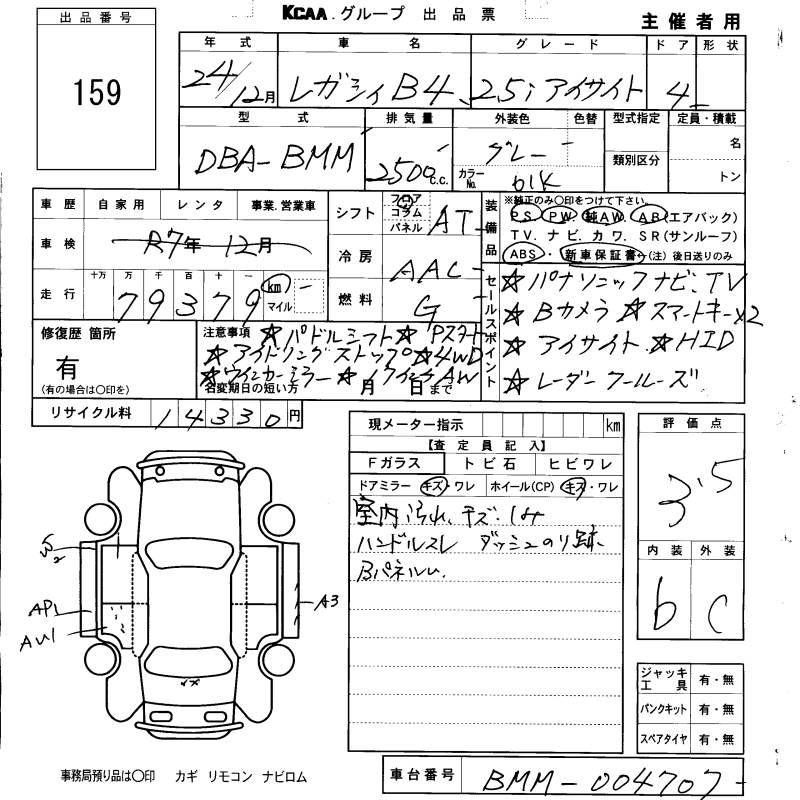 出品番号
159
KCAA.グループ 出品票
主催者用
年式 車名 グレード ドア 形状
24/12月 レガシィB4 2.5i アイサイト 4
型式 排気量 外装色 色替 型式指定 定員・積載
DBA-BMM 2500c.c. グレー 類別区分 名
カラーNo. 01K トン
車歴 自家用 レンタ 事業.営業車
車検 R7年12月
走行 十万 万 千 百 十 一
79379 km マイル
シフト フロア コラム パネル AT
冷房 AAC
燃料 G
装備品 ※純正のみ○印をつけて下さい。
PS. PW. 純AW. AB(エアバック)
TV. ナビ. カワ. SR(サンルーフ)
ABS・新車保証書(注)後日送りのみ
セールスポイント
☆パナソニックナビ、TV
☆Bカメラ ☆スマートキーx2
☆アイサイト ☆HID
☆レーダークルーズ
修復歴 箇所
有
(有の場合は○印を)
注意事項 ☆パドルシフト ☆Pスタート
☆アイドリングストップ ☆4WD
☆ウインカーミラー ☆17インチAW
名変期日の短い方 月 日まで
リサイクル料 14330円
現メーター指示 km
【査定員記入】
Fガラス トビ石 ヒビワレ
ドアミラー キズ・ワレ ホイール(CP) キズ・ワレ
室内汚れ、キズ・しみ
ハンドルスレ ダッシュのり跡
Bパネルu.
評価点
3.5
内装 外装
b C
W2
AP1
AU1
A3
ジャッキ工具 有・無
パンクキット 有・無
スペアタイヤ 有・無
事務局預り品は○印 カギ リモコン ナビロム
車台番号 BMM-004707